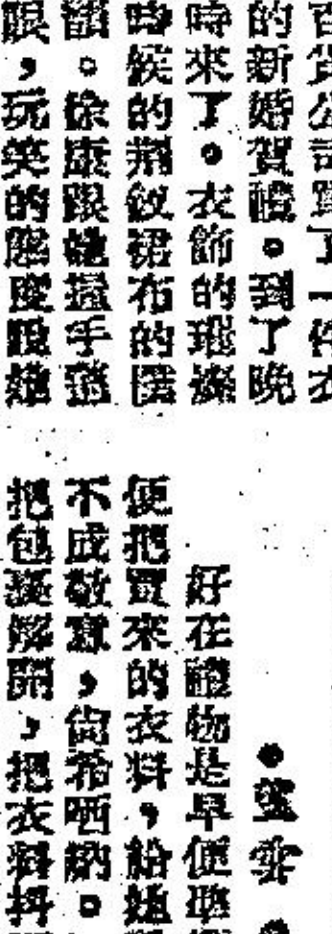 百貨公司買了一件衣
的新婚賀禮。到了晚
時來了。衣飾的璀燦
時候的荊釵裙布的樸
韻。徐康跟她握手
眼,玩笑的態度說她
•雲•
好在禮物是早便
便把買來的衣料,給她
不成敬意,尙希哂納。
把包裹解開,把衣料抖